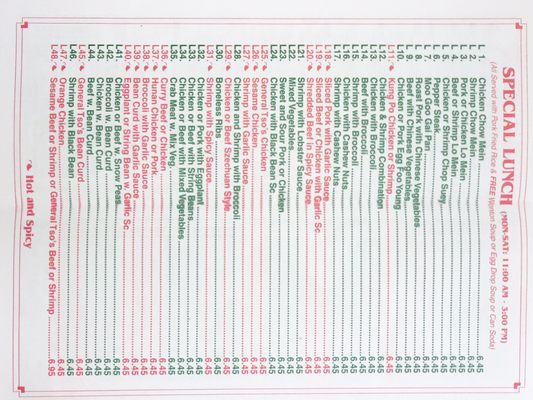 SPECIAL LUNCH (MON-SAT: 11:00 AM - 3:00 PM)
(All Served with Pork Fried Rice & FREE Wonton Soup or Egg Drop Soup or Can Soda)
L 1. Chicken Chow Mein 6.45
L 2. Shrimp Chow Mein 6.45
L 3. Pork or Chicken Lo Mein 6.45
L 4. Beef or Shrimp Lo Mein 6.45
L 5. Chicken or Shrimp Chop Suey 6.45
L 6. Pepper Steak 6.45
L 7. Moo Goo Gai Pan 6.45
L 8. Roast Pork with Chinese Vegetables 6.45
L 9. Beef with Chinese Vegetables 6.45
L10. Chicken or Pork Egg Foo Young 6.45
L11. Kung Po Chicken or Shrimp 6.45
L12. Chicken & Shrimp Combination 6.45
L13. Chicken with Broccoli 6.45
L14. Beef with Broccoli 6.45
L15. Shrimp with Broccoli 6.45
L16. Chicken with Cashew Nuts 6.45
L17. Shrimp with Cashew Nuts 6.45
L18. Sliced Pork with Garlic Sc 6.45
L19. Sliced Beef or Chicken with Garlic Sc 6.45
L20. Shredded Beef in Spicy Sauce 6.45
L21. Shrimp with Lobster Sauce 6.45
L22. Mixed Vegetables 6.45
L23. Sweet and Sour Pork or Chicken 6.45
L24. Chicken with Black Bean Sc 6.45
L25. General Tso's Chicken 6.45
L26. Sesame Chicken 6.45
L27. Shrimp with Garlic Sauce 6.45
L28. Chicken and Shrimp with Broccoli 6.45
L29. Chicken or Beef Szechuan Style 6.45
L30. Boneless Ribs 6.45
L31. Shrimp with Spicy Sauce 6.45
L32. Chicken or Pork with Eggplant 6.45
L33. Chicken or Beef with String Beans 6.45
L34. Chicken or Beef with Mixed Vegetables 6.45
L35. Crab Meat w. Mix Veg 6.45
L36. Curry Beef or Chicken 6.45
L37. Hunan Beef, Chicken or Pork 6.45
L38. Broccoli with Garlic Sauce 6.45
L39. Bean Curd with Garlic Sauce 6.45
L40. Eggplant or String Bean w. Garlic Sc 6.45
L41. Chicken or Beef w. Snow Peas 6.45
L42. Broccoli w. Bean Curd 6.45
L43. Chicken w. Bean Curd 6.45
L44. Beef w. Bean Curd 6.45
L45. General Tso's Bean Curd 6.45
L46. Shrimp with Black Bean 6.45
L47. Orange Chicken 6.45
L48. Sesame Beef or Shrimp or General Tso's Beef or Shrimp 6.95
Hot and Spicy